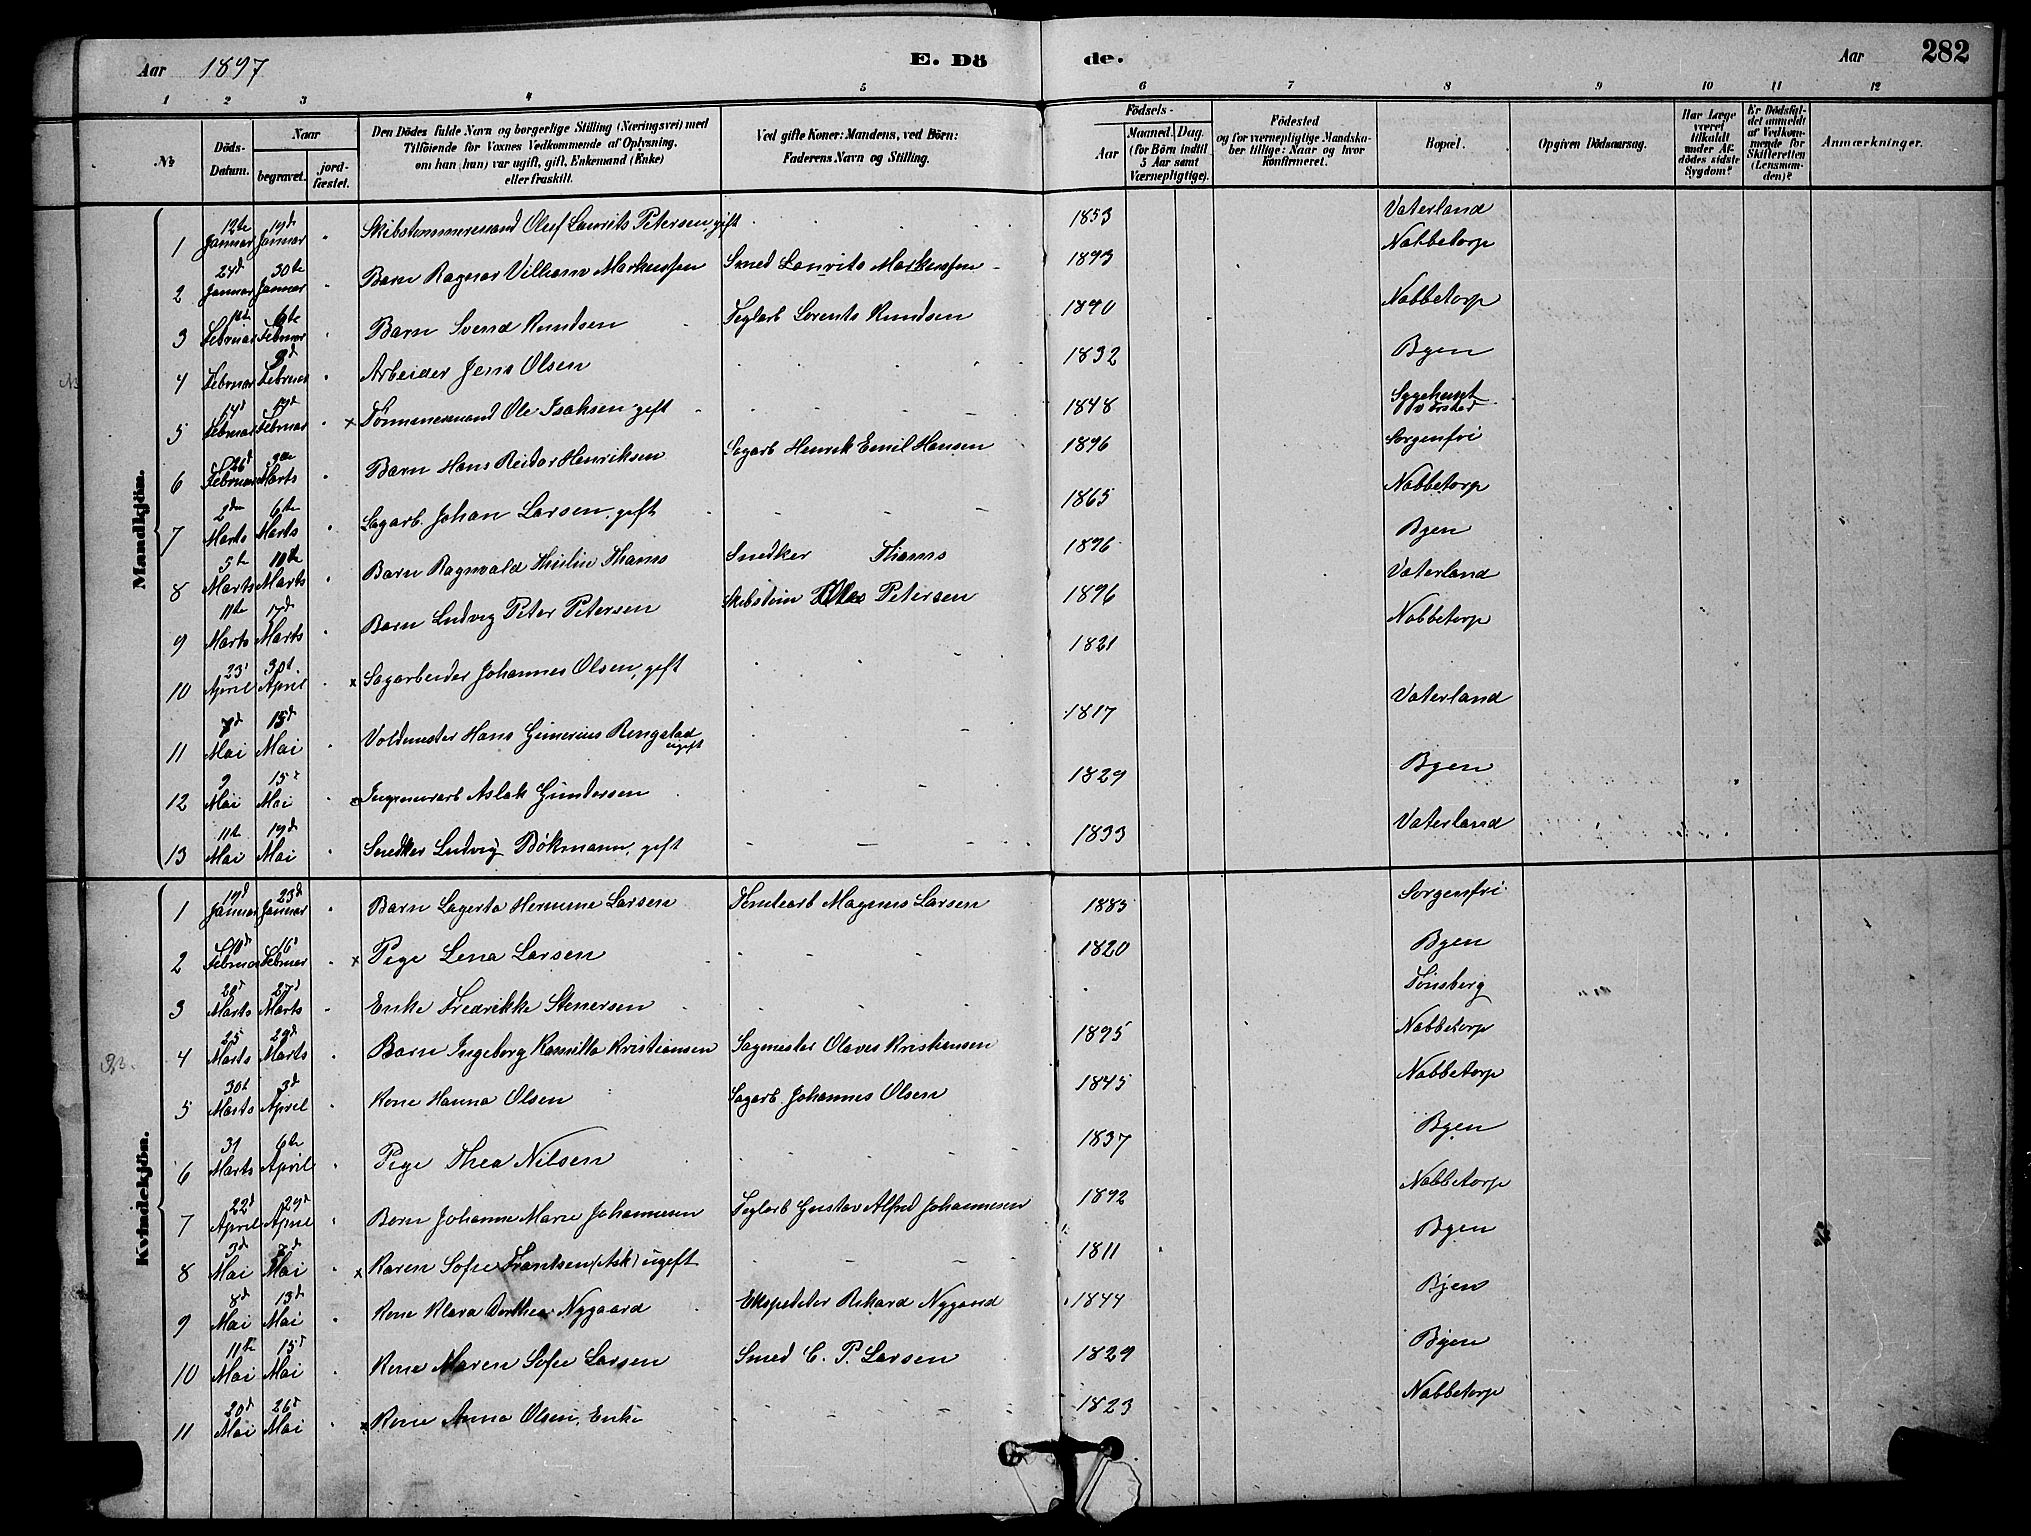 Aar 1897 E. Dö de. Aar 282
1 2 3 4 5 6 7 8 9 10 11 12
No
Döds-Datum.
Naar
begravet.
jord-fæstet.
Den Dödes fulde Navn og borgerlige Stilling (Næringsvei) med
Tilföiende for Voxnes Vedkommende af Oplysning,
om han (hun) var ugift, gift, Enkemand (Enke)
eller fraskilt.
Ved gifte Koner: Mandens, ved Börn:
Faderens Navn og Stilling.
Födsels-
Aar
Maaned. Dag.
(for Börn indtil
5 Aar samt
Værnepligtige).
Födested
og for værnepligtige Mandska-
ber tillige: Naar og hvor
konfirmeret.
Bopæl.
Opgiven Dödsaarsag.
Har Læge
været
tilkaldt
under Af-
dödes sidste
Sygdom?
Er Dödsfal-
det anmeldt
af Vedkom-
mende for
Skifteretten
(Lensman-
den)?
Anmærkninger.
Mandkjön.
1 12te Januar 19d Januar " Skibstømmermand Oluf Laurits Petersen gift 1853 Vaterland
2 24d Januar 30te Januar " Barn Ragnar Villiam Markussen Smed Laurits Markussen 1893 Nabbetorp
3 Februar 6te Februar " Barn Svend Knudsen Teglarb Lorents Knudsen 1890 Nabbetorp
4 Februar Februar " Arbeider Jens Olsen 1832 Byen
5 14d Februar 19d Februar " x Tømmermand Ole Isaksen gift 1848 Sygehuset
6 26d Februar Marts " Barn Hans Reidar Henriksen Sagarb Henrik Emil Hansen 1896 Sorgenfri
7 2den Marts 6te Marts " Sagarb. Johan Larsen, gift 1865 Nabbetorp
8 5te Marts 10de Marts " Barn Ragnvald Thams Snedker Thams 1896 Byen
9 11te Marts 17d Marts " Barn Ludvig Peter Petersen Skibstøm Petersen 1896 Vaterland
10 23d April 30t April " x Sagarbeider Johannes Olsen, gift 1821 Nabbetorp
11 7d Mai 15d Mai " Voldmester Hans Gunerius Ringstad
ugift 1817 Vaterland
12 9 Mai 15d Mai " x Aslak Gundersen 1829 Byen
13 11te Mai 19d Mai " Snedker Ludvig Bökmann, gift 1833 Vaterland
Kvindekjön.
1 19d Januar 23d Januar " Barn Lagerta Hermine Larsen Magnus Larsen 1885 Sorgenfri
2 10d Februar 16d Februar " x Pige Lena Larsen 1820 Byen
3 20d Marts 27d Marts " Enke Fredrikke Stenersen Tönsberg
4 25 Marts 29d Marts " Barn Ingeborg Kamilla Kristiansen Sagmester Olaves Kristiansen 1895 Nabbetorp
5 30t Marts 3d April " Kone Hanna Olsen Sagarb. Johannes Olsen 1845 Nabbetorp
6 31 Marts 6te April " Pige Thea Nilsen 1837 Byen
7 22d April 29d April " Barn Johanne Marie Johannesen Teglarb Gustav Alfred Johannesen 1892 Nabbetorp
8 3d Mai 7d Mai " x Karen Sofie Frantsen (Ask) ugift 1811 Byen
9 8d Mai 13d Mai " Kone Klara Dorthea Nygaard Ekspeditør Rikard Nygaard 1844 Byen
10 11te Mai 15d Mai " Kone Maren Sofie Larsen Smed C. P. Larsen 1829 Byen
11 20d Mai 26d Mai x Kone Anna Olsen, Enke 1823 Nabbetorp